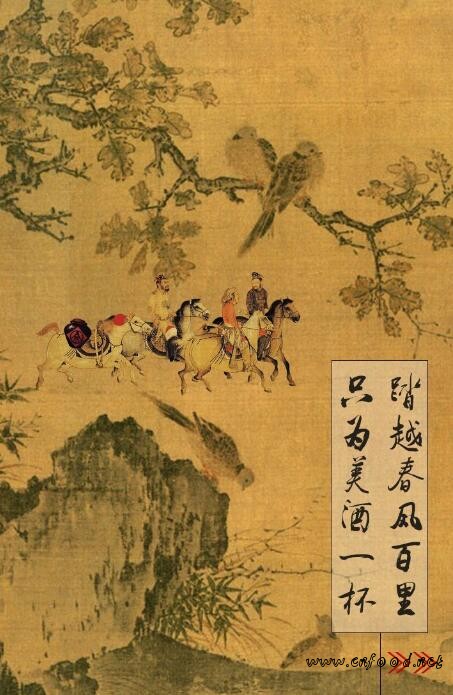 踏越春风百里
只为美酒一杯
www.cnfood.net